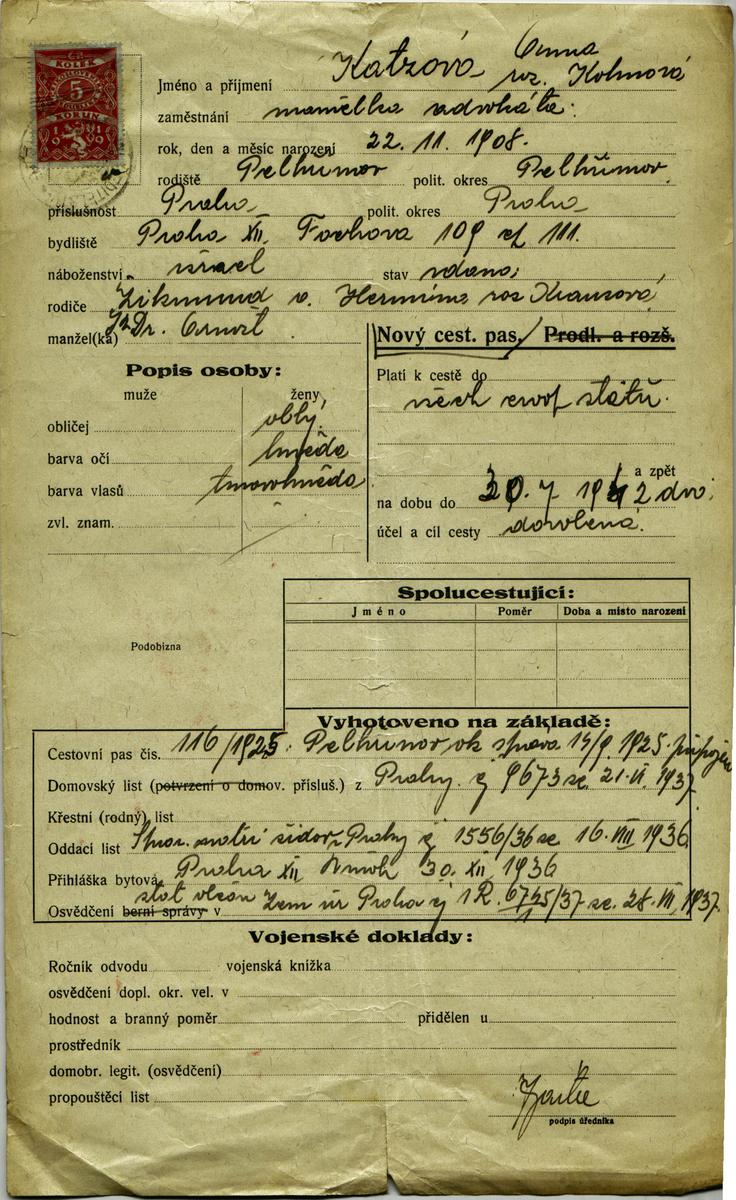 KOLEK
5
KORUN
1919
Anna
Jméno a příjmení Katzová roz. Kohnová
zaměstnání manželka advokáta.
rok, den a měsíc narození 22. 11. 1908.
rodiště Pelhřimov polit. okres Pelhřimov
příslušnost Praha polit. okres Praha
bydliště Praha XII. Fochova 109 čp 111.
náboženství israel stav vdaná
rodiče Zikmund a Hermína roz Krausová
manžel(ka) JUDr. Arnošt
Nový cest. pas / Prodl. a rozš.
Popis osoby:
muže ženy
obličej oblý
barva očí hnědá
barva vlasů tmavohnědá
zvl. znam.
Platí k cestě do
všech evrop států.
a zpět
na dobu do 30. 7 1942
účel a cíl cesty dovolená.
Podobizna
Spolucestující:
Jméno Poměr Doba a místo narození
Vyhotoveno na základě:
Cestovní pas čís. 116/1925 Pelhřimov ok správa 14/9. 1925
Domovský list (potvrzení o domov. přísluš.) z Prahy čj 9673 ze 21. VI. 1937
Křestní (rodný) list
Oddací list židov Prahy čj 1556/36 ze 16. VIII 1936
Přihláška bytová Praha XII 30. XII 1936
stát občan Zem úr Praha čj
Osvědčení berní správy v 1 R. 6725/1/37 ze. 28. VI. 1937.
Vojenské doklady:
Ročník odvodu vojenská knížka
osvědčení dopl. okr. vel. v
hodnost a branný poměr přidělen u
prostředník
domobr. legit. (osvědčení)
propouštěcí list
podpis úředníka